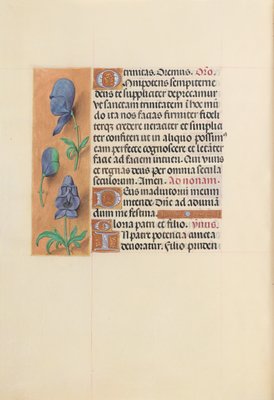 trinitas. Oremus. Oro.
Omnipotens sempiterne
deus te suppliciter deprecamur
ut sanctam trinitatem i hoc mu
do ita nos facias firmiter fideli
terqz credere veraciter et simplici
ter confiteri ut in aliquo possim
eam perfecte cognoscere et letater
facie ad faciem intueri. Qui vivis
et regnas deus Per omnia secula
seculorum. Amen. Ad nonam.
Deus inadiutorium meum
intende. Dne ad adiuuan
dum me festina.
Gloria patri et filio. ymus.
In patre potencia cuncta
devoratur. Filio pruden